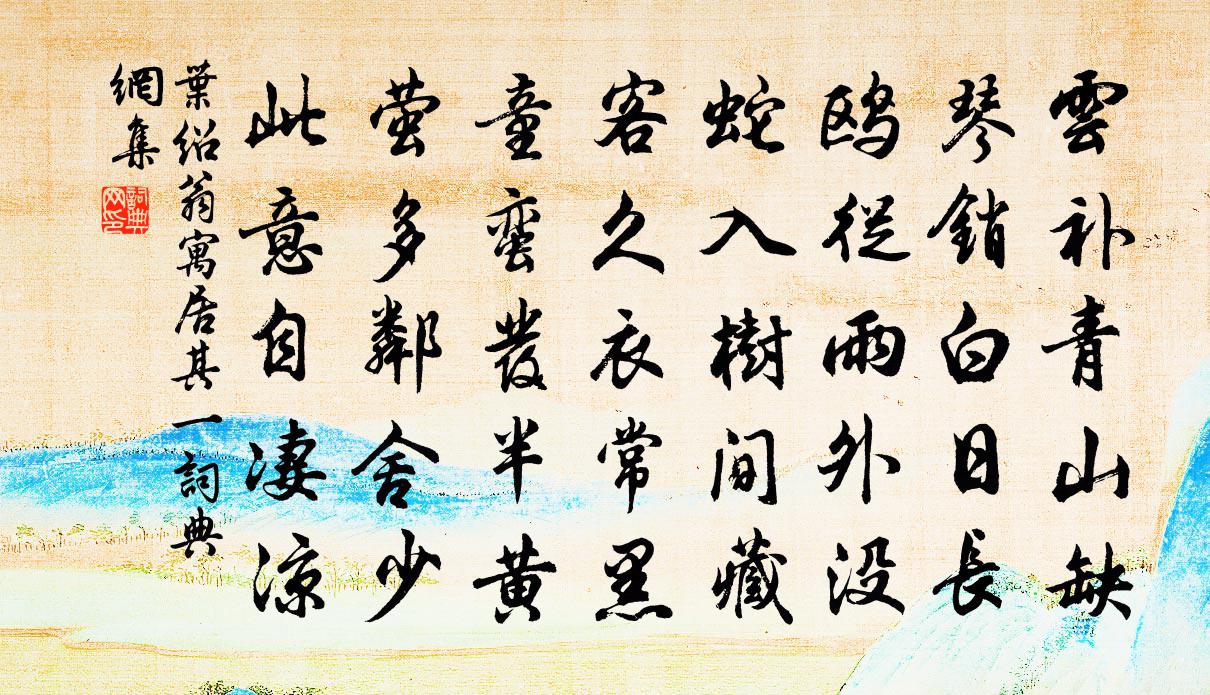 雲补青山缺
琴銷白日長
鸥從雨外没
蛇入樹间藏
客久衣常黑
童蛮發半黄
萤多鄰舍少
此意自凄涼
葉绍翁寓居其一詞典
網集
詞典
网印